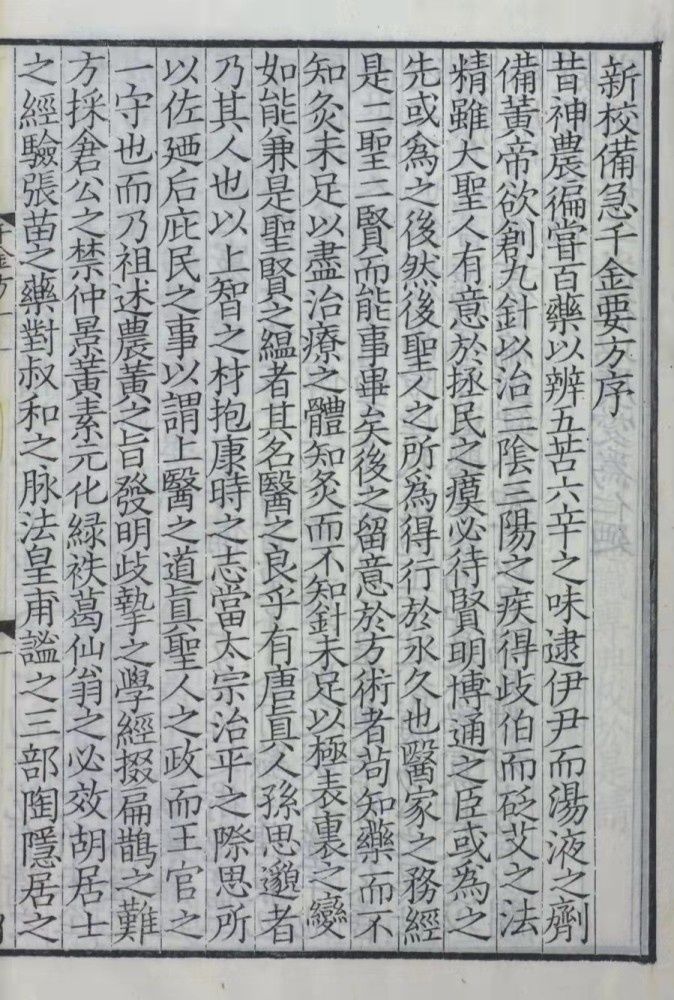 新校備急千金要方序
昔神農徧嘗百藥以辨五苦六辛之味逮伊尹而湯液之劑
備黃帝欲創九針以治三陰三陽之疾得歧伯而砭艾之法
精雖大聖人有意於拯民之瘼必待賢明博通之臣或為之
先或為之後然後聖人之所為得行於永久也醫家之務經
是二聖二賢而能事畢矣後之留意於方術者茍知藥而不
知灸未足以盡治療之體知灸而不知針未足以極表裏之變
如能兼是聖賢之蘊者其名醫之良乎有唐真人孫思邈者
乃其人也以上智之材抱康時之志當太宗治平之際思所
以佐廼后庇民之事以謂上醫之道真聖人之政而王官之
一守也而乃祖述農黃之旨發明歧摯之學經掇扁鵲之難
方採倉公之禁仲景黃素元化緑袟葛仙翁之必效胡居士
之經驗張苗之藥對叔和之脉法皇甫謐之三部陶隱居之
千金方